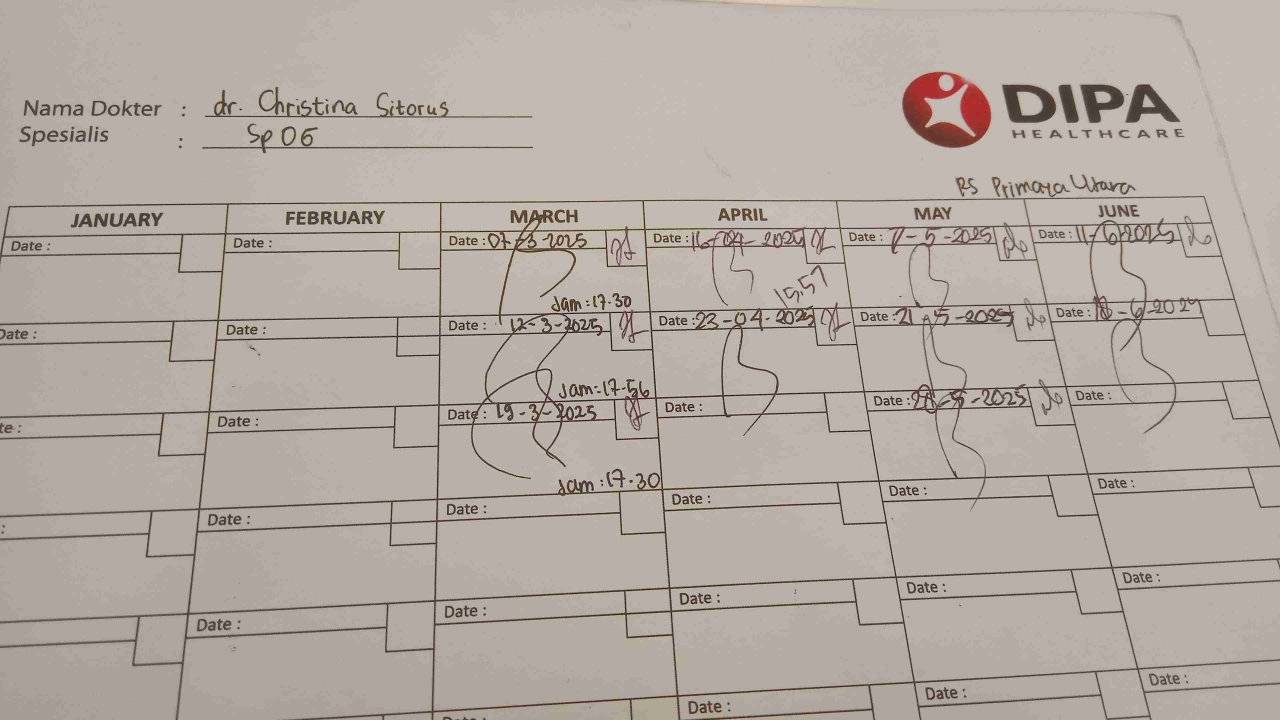 Nama Dokter : dr. Christina Sitorus
Spesialis : Sp OG
DIPA
HEALTHCARE
RS Primaya Utara
JANUARY FEBRUARY MARCH APRIL MAY JUNE
Date : Date : Date : 07-3-2025 Date : 16-04-2025 Date : 7-5-2025 Date : 11-6-2025
Jam : 17.30 15.57
Date : Date : Date : 12-3-2025 Date : 23-04-2025 Date : 21-5-2025 Date : 18-6-202
Jam : 17.56
te : Date : Date : 19-3-2025 Date : Date : 28-5-2025 Date :
Jam : 17.30
: Date : Date : Date : Date : Date :
Date : Date : Date : Date : Date :
Date : Date : Date : Date :